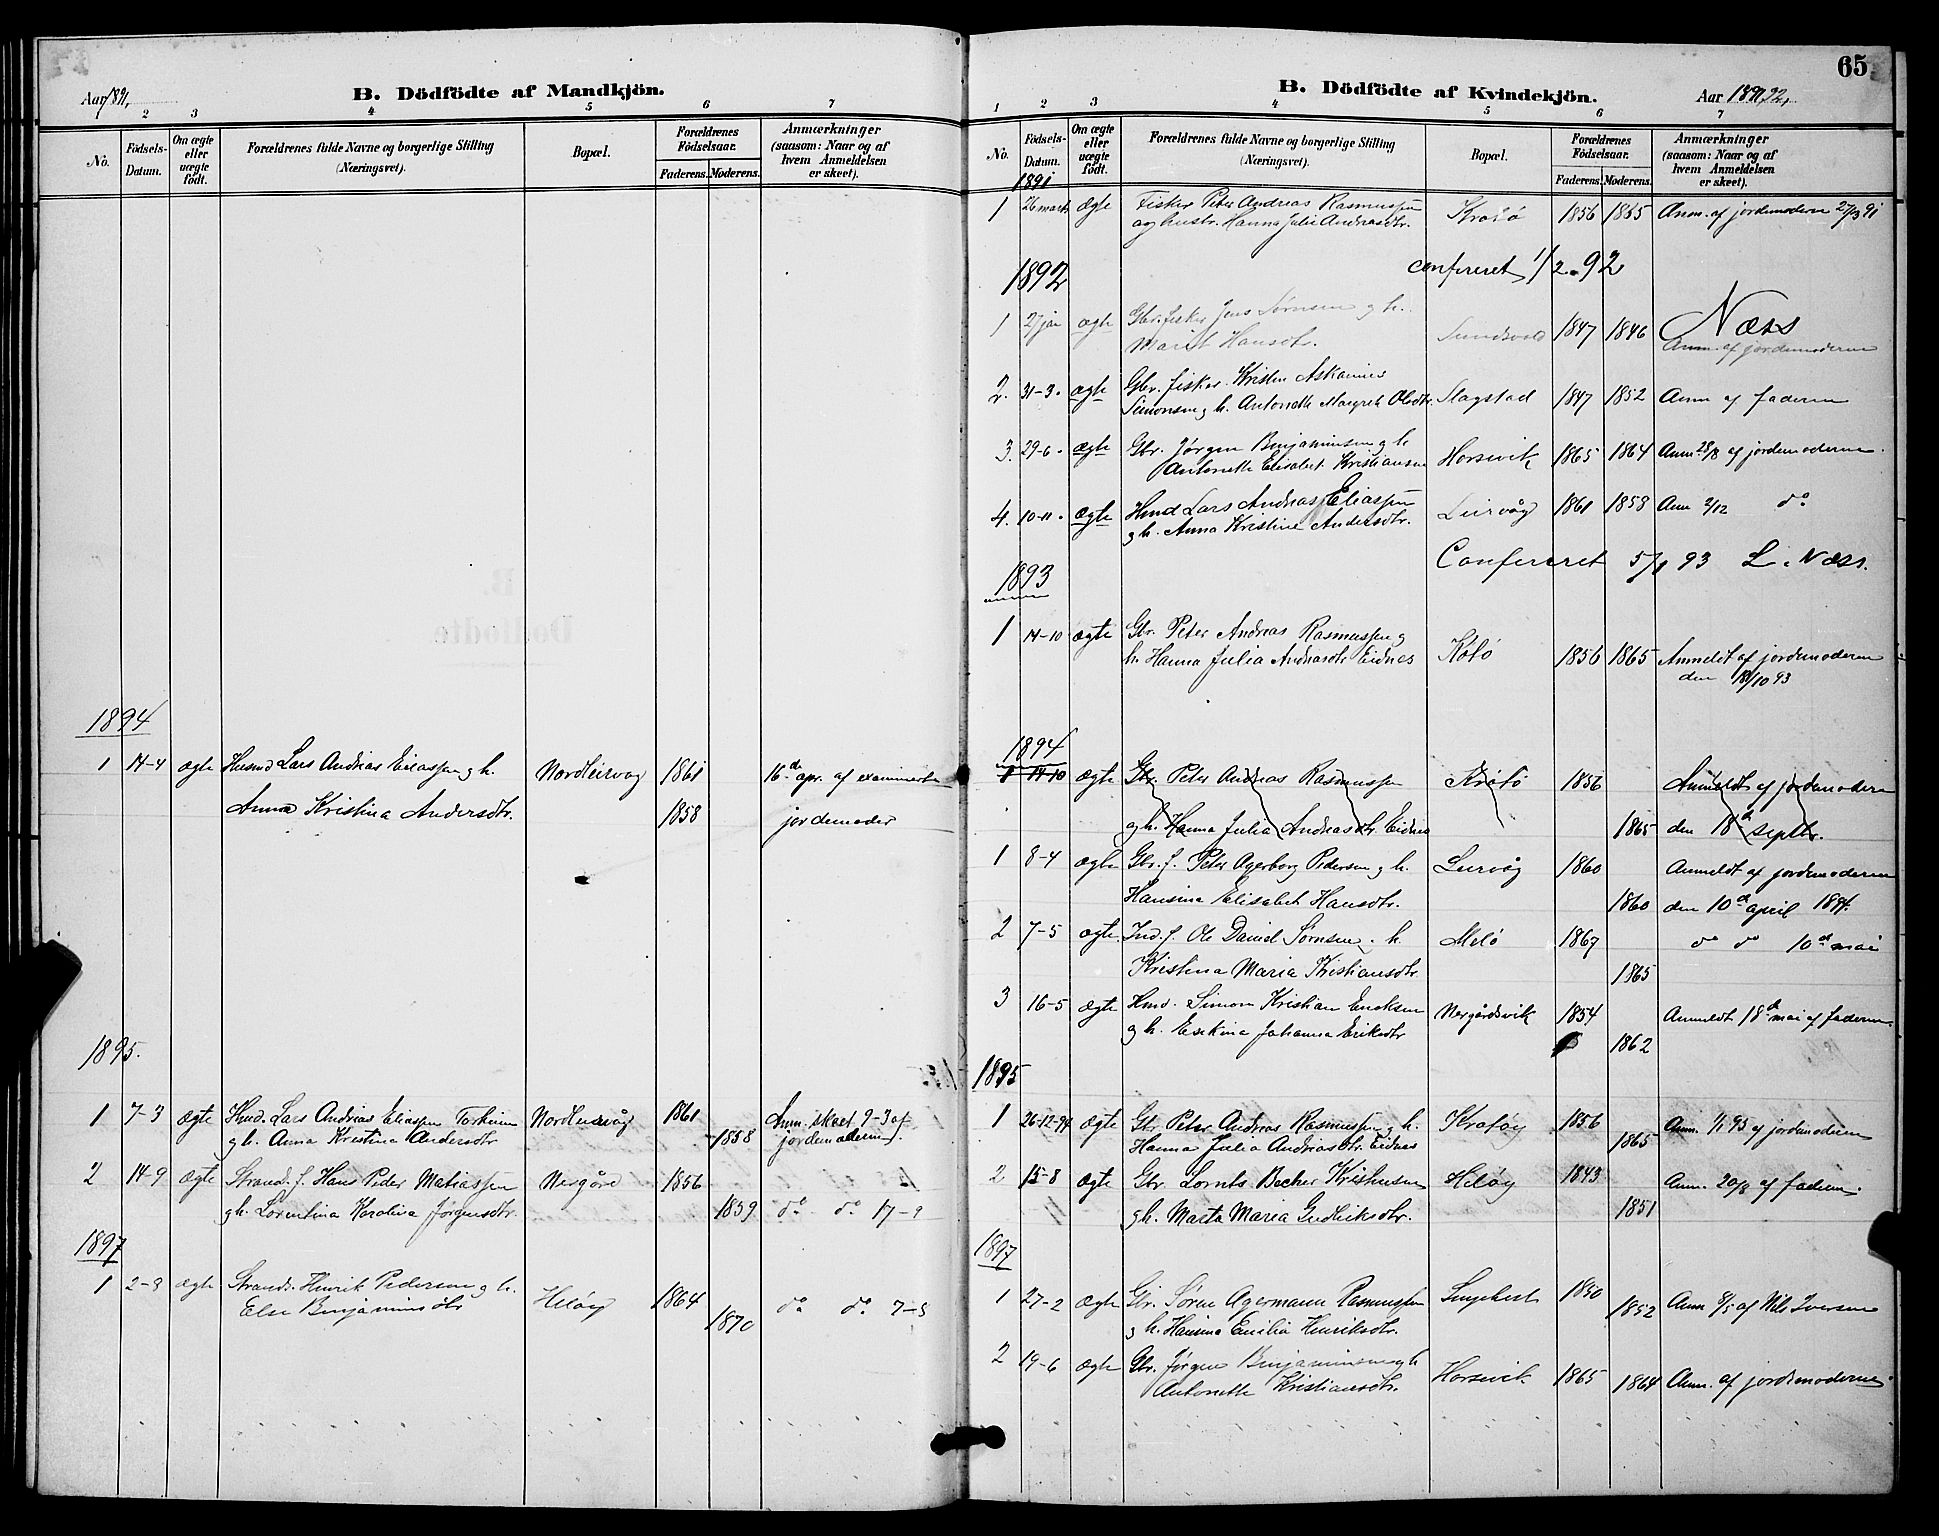 Aar 1891,
B. Dödfödte af Mandkjön.
2 3 4 5 6 7
No.
Födsels-Datum.
Om ægte eller uægte födt.
Forældrenes fulde Navne og borgerlige Stilling
(Næringsvei).
Bopæl.
Forældrenes Födselsaar.
Faderens. Moderens.
Anmærkninger
(saasom: Naar og af
hvem Anmeldelsen
er skeet).
1894
1 14-4 ægte Husmd Lars Andreas Eliassen g h. Nordleirvåg 1861 16d apr. af examineret
Anna Kristina Andersdtr. 1858 jordemoder
1895.
1 7-3 ægte Husmd. Lars Andreas Eliassen Nordleirvåg 1861 Anm. skeet 9-3 af
g h. Anna Kristina Andersdtr 1858 jordemoderen.
2 14-9 ægte Strand. f. Hans Peder Matiassen Nergård 1856
g h. Lorentina Karolina Jørgensdtr. 1859 do do 17-9
1897
1 2-3 ægte Strands. Henrik Pedersen g h. Heløy 1864
Else Benjaminsdtr 1870 do do 7-3
65
B. Dödfödte af Kvindekjön.
Aar 1891,92,
1 2 3 4 5 6 7
No.
Födsels-Datum.
Om ægte eller uægte födt.
Forældrenes fulde Navne og borgerlige Stilling
(Næringsvei).
Bopæl.
Forældrenes Födselsaar.
Faderens. Moderens.
Anmærkninger
(saasom: Naar og af
hvem Anmeldelsen
er skeet).
1891
1 26 marts ægte Fisker Peter Andreas Rasmussen 1856 1865 Anm. af jordemoderen 27/3 91
og hustr. Hanna Julie Andreasdtr.
1892 Confereret 1/2 92
1 27 jan ægte Gbr. fisker Jens Sørensen g h. Sundsvold 1847 1846 Næss
Marit Hansdtr. Anm. af jordemoderen
2. 31-3. ægte Gbr. fisker. Kristen Askanius
Simonsen g h. Antonette Margrete Olsdtr. Slagstad 1847 1852 Anm af faderen
3. 29-6. ægte Gbr. Jørgen Benjaminsen g h
Antonette Elisabet Kristiansen Horsevik 1865 1864 Anm 28/8 af jordemoderen.
4. 10-11. ægte Hmd Lars Andreas Eliassen
g h. Anna Kristine Andersdtr. Leirvåg 1861 1858 Anm 2/12 do
Confereret 5/1 93 L. Næss.
1893
1 14-10 ægte Gbr. Peter Andreas Rasmussen g
h. Hanna Julia Andreasdtr Eidnes 1856 1865 Anmeldt af jordemoderen
den 18/10 93
1894
1 14-10 ægte Gbr. Peter Andreas Rasmussen 1856 Anmeldt af jordemoderen
g h. Hanna Julia Andreasdtr. Eidnes 1865 den 18d septbr.
1 8-4 ægte Gbr. f. Peter Agerborg Pedersen g h. Leirvåg 1860 Anmeldt af jordemoderen
Hansine Elisabet Hansdtr. 1860 den 10d april 1894.
2 7-5 ægte. Ind. f. Ole Daniel Sørnsen g h. Melø 1867 do do 10d mai
Kristina Maria Kristiansdtr. 1865
3 16-5 ægte Hmd. Simon Kristian Ericksen Nergårdsvik 1854 Anmeldt 18d mai af faderen.
g h. Esekine Johanna Eriksdtr 1862
1895
1 26-12-94 ægte Gbr Peter Andreas Rasmussen g h. 1856
Hanna Julia Andreasdtr Eidnes 1865 Anm. 1/1 95 af jordemoderen
2 15-8 ægte Gbr Lornts Becher Kristensen Heløy 1843 Anm. 20/8 af faderen.
g h. Marta Maria Gudriksdtr. 1851
1897
1 27-2 ægte Gbr. Søren Agermann Rasmussen 1850
g h. Hansina Emilia Henriksdtr. 1852 Anm 8/5 af Nils Iversen
2 19-6 ægte Gbr. Jørgen Benjaminsen g h
Antonette Kristiansdtr. Horsevik 1865 1864 Anm. af jordemoderen